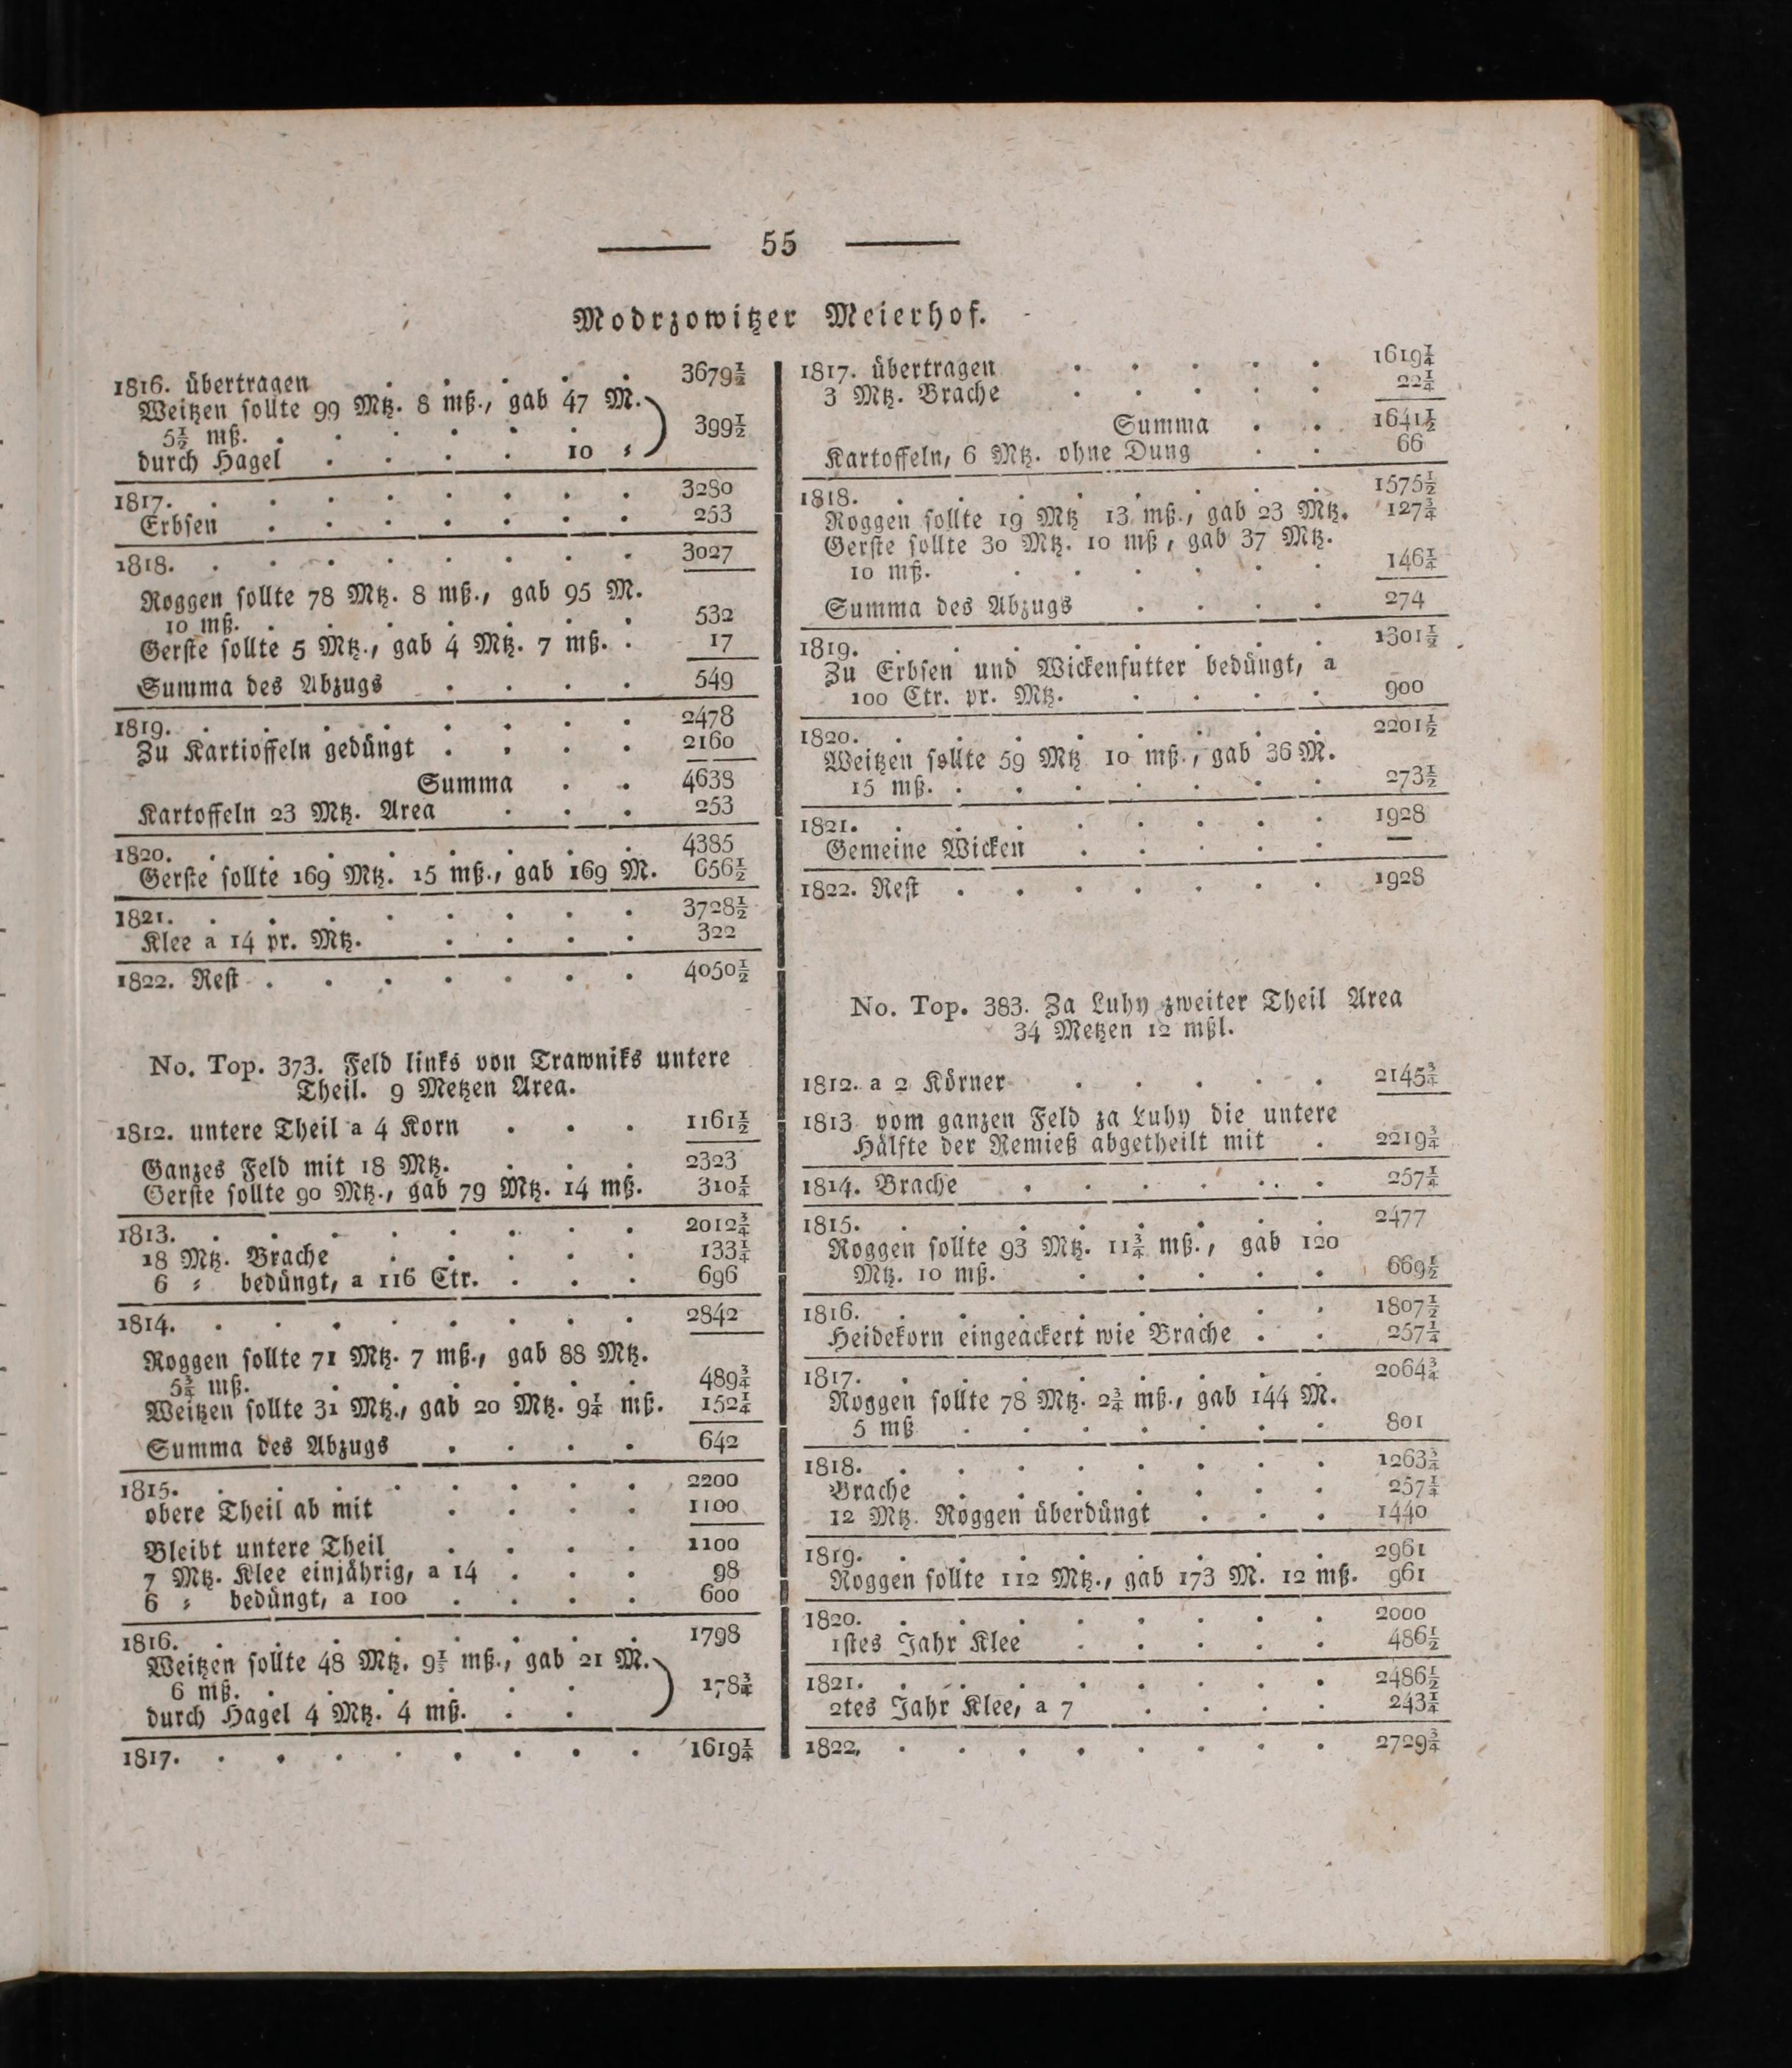 55
Modrzowitzer Meierhof.
1816. übertragen . . . . . 3679½
Weitzen sollte 99 Mtz. 8 mß., gab 47 M.
5½ mß. . . . . . . 399½
durch Hagel . . . . 10 „
1817. . . . . . . . . 3280
Erbsen . . . . . . . 253
1818. . . . . . . . . 3027
Roggen sollte 78 Mtz. 8 mß., gab 95 M.
10 mß. . . . . . . . 532
Gerste sollte 5 Mtz., gab 4 Mtz. 7 mß. . 17
Summa des Abzugs . . . . 549
1819. . . . . . . . . 2478
Zu Kartioffeln gedüngt . . . . 2160
Summa . . 4638
Kartoffeln 23 Mtz. Area . . . 253
1820. . . . . . . . . 4385
Gerste sollte 169 Mtz. 15 mß., gab 169 M. 656½
1821. . . . . . . . . 3728½
Klee a 14 pr. Mtz. . . . . 322
1822. Rest . . . . . . . 4050½
No. Top. 373. Feld links von Trawniks untere
Theil. 9 Metzen Area.
1812. untere Theil a 4 Korn . . . 1161½
Ganzes Feld mit 18 Mtz. . . . 2323
Gerste sollte 90 Mtz., gab 79 Mtz. 14 mß. 310¼
1813. . . . . . . . . 2012¾
18 Mtz. Brache . . . . . 133¼
6 „ bedüngt, a 116 Ctr. . . . 696
1814. . . . . . . . . 2842
Roggen sollte 71 Mtz. 7 mß., gab 88 Mtz.
5¾ mß. . . . . . . 489¾
Weitzen sollte 31 Mtz., gab 20 Mtz. 9¼ mß. 152¼
Summa des Abzugs . . . . 642
1815. . . . . . . . . 2200
obere Theil ab mit . . . . 1100
Bleibt untere Theil . . . . 1100
7 Mtz. Klee einjährig, a 14 . . . 98
6 „ bedüngt, a 100 . . . . 600
1816. . . . . . . . . 1798
Weitzen sollte 48 Mtz. 9½ mß., gab 21 M.
6 mß. . . . . . . 178¾
durch Hagel 4 Mtz. 4 mß. . .
1817. . . . . . . . . 1619¼
1817. übertragen . . . . . 1619¼
3 Mtz. Brache . . . . . 22¼
Summa . . 1641½
Kartoffeln, 6 Mtz. ohne Dung . . 66
1818. . . . . . . . . 1575½
Roggen sollte 19 Mtz 13 mß., gab 23 Mtz. 127¾
Gerste sollte 30 Mtz. 10 mß, gab 37 Mtz.
10 mß. . . . . . . 146¼
Summa des Abzugs . . . . 274
1819. . . . . . . . . 1301½
Zu Erbsen und Wickenfutter bedüngt, a
100 Ctr. pr. Mtz. . . . . 900
1820. . . . . . . . . 2201½
Weitzen sollte 59 Mtz 10 mß., gab 36 M.
15 mß. . . . . . . . 273½
1821. . . . . . . . . 1928
Gemeine Wicken . . . . . —
1822. Rest . . . . . . . 1928
No. Top. 383. Za Luhy zweiter Theil Area
34 Metzen 12 mßl.
1812. a 2 Körner . . . . . 2145¾
1813 vom ganzen Feld za Luhy die untere
Hälfte der Remieß abgetheilt mit . 2219¾
1814. Brache . . . . . . 257¼
1815. . . . . . . . . 2477
Roggen sollte 93 Mtz. 11¾ mß., gab 120
Mtz. 10 mß. . . . . . 669½
1816. . . . . . . . . 1807½
Heidekorn eingeackert wie Brache . . 257¼
1817. . . . . . . . . 2064¾
Roggen sollte 78 Mtz. 2¾ mß., gab 144 M.
5 mß . . . . . . . 801
1818. . . . . . . . . 1263¾
Brache . . . . . . . 257¼
12 Mtz. Roggen überdüngt . . . 1440
1819. . . . . . . . . 2961
Roggen sollte 112 Mtz., gab 173 M. 12 mß. 961
1820. . . . . . . . . 2000
1stes Jahr Klee . . . . . 486½
1821. . . . . . . . . 2486½
2tes Jahr Klee, a 7 . . . . 243¼
1822, . . . . . . . . 2729¾